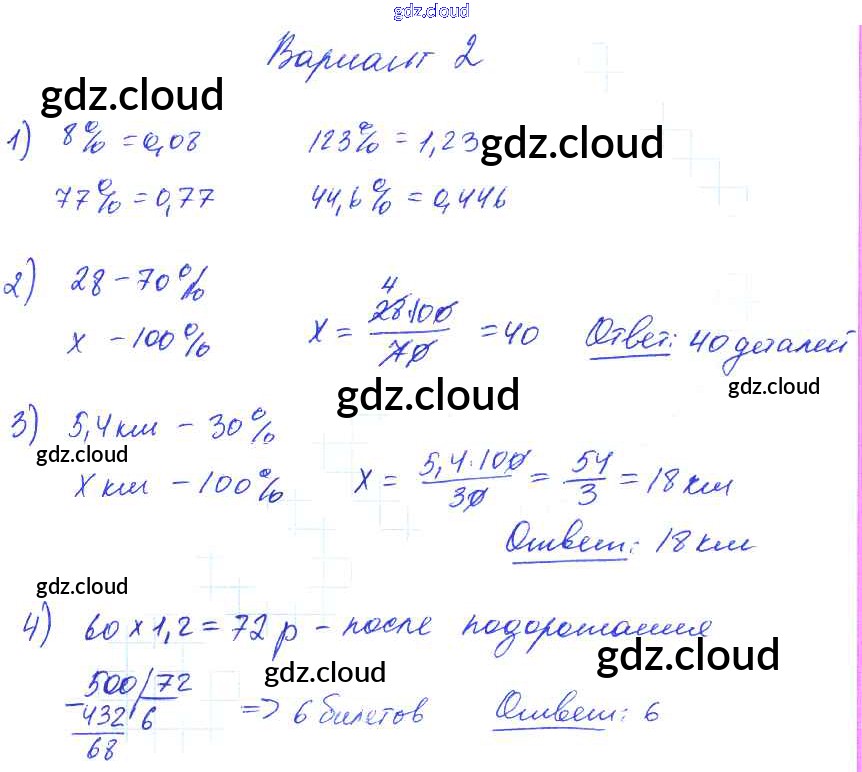 gdz.cloud
Вариант 2
gdz.cloud
1) 8% = 0,08 123% = 1,23 gdz.cloud
77% = 0,77 44,6% = 0,446
2) 28 - 70%
x - 100% x = 28·100/70 = 40 Ответ: 40 деталей
4
gdz.cloud gdz.cloud
3) 5,4 км - 30%
gdz.cloud
x км - 100% x = 5,4·100/30 = 54/3 = 18 км
Ответ: 18 км
gdz.cloud
4) 60 × 1,2 = 72 р - после подорожания
gdz.cloud gdz.cloud
500 | 72
- 432 6 => 6 билетов Ответ: 6
68